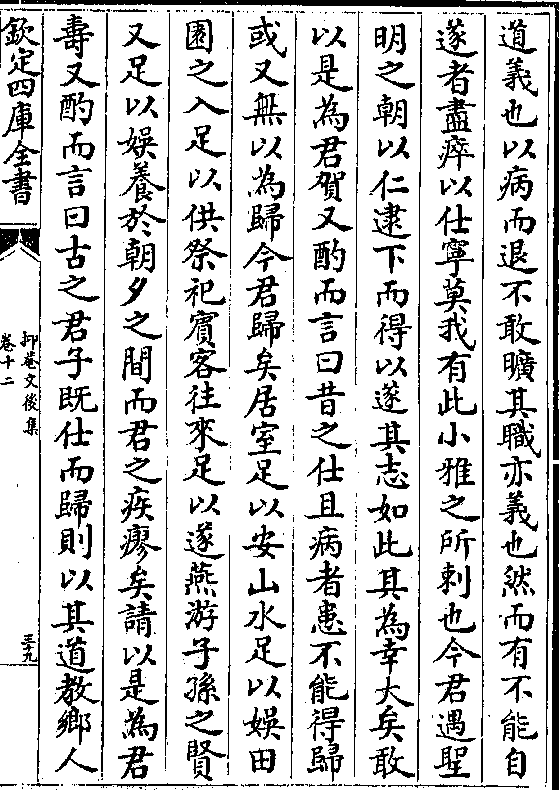 道義也以病而退不敢曠其職亦義也然而有不能自
遂者盡瘁以仕寧莫我有此小雅之所刺也今君遇聖
明之朝以仁逮下而得以遂其志如此其為幸大矣敢
以是為君賀又酌而言曰昔之仕且病者患不能得歸
或又無以為歸今君歸矣居室足以安山水足以娛田
園之入足以供祭祀賓客往來足以遂燕游子孫之賢
又足以娛養於朝夕之間而君之疾瘳矣請以是為君
壽又酌而言曰古之君子既仕而歸則以其道教鄉人
欽定四庫全書
抑菴文後集
卷十二
三十九